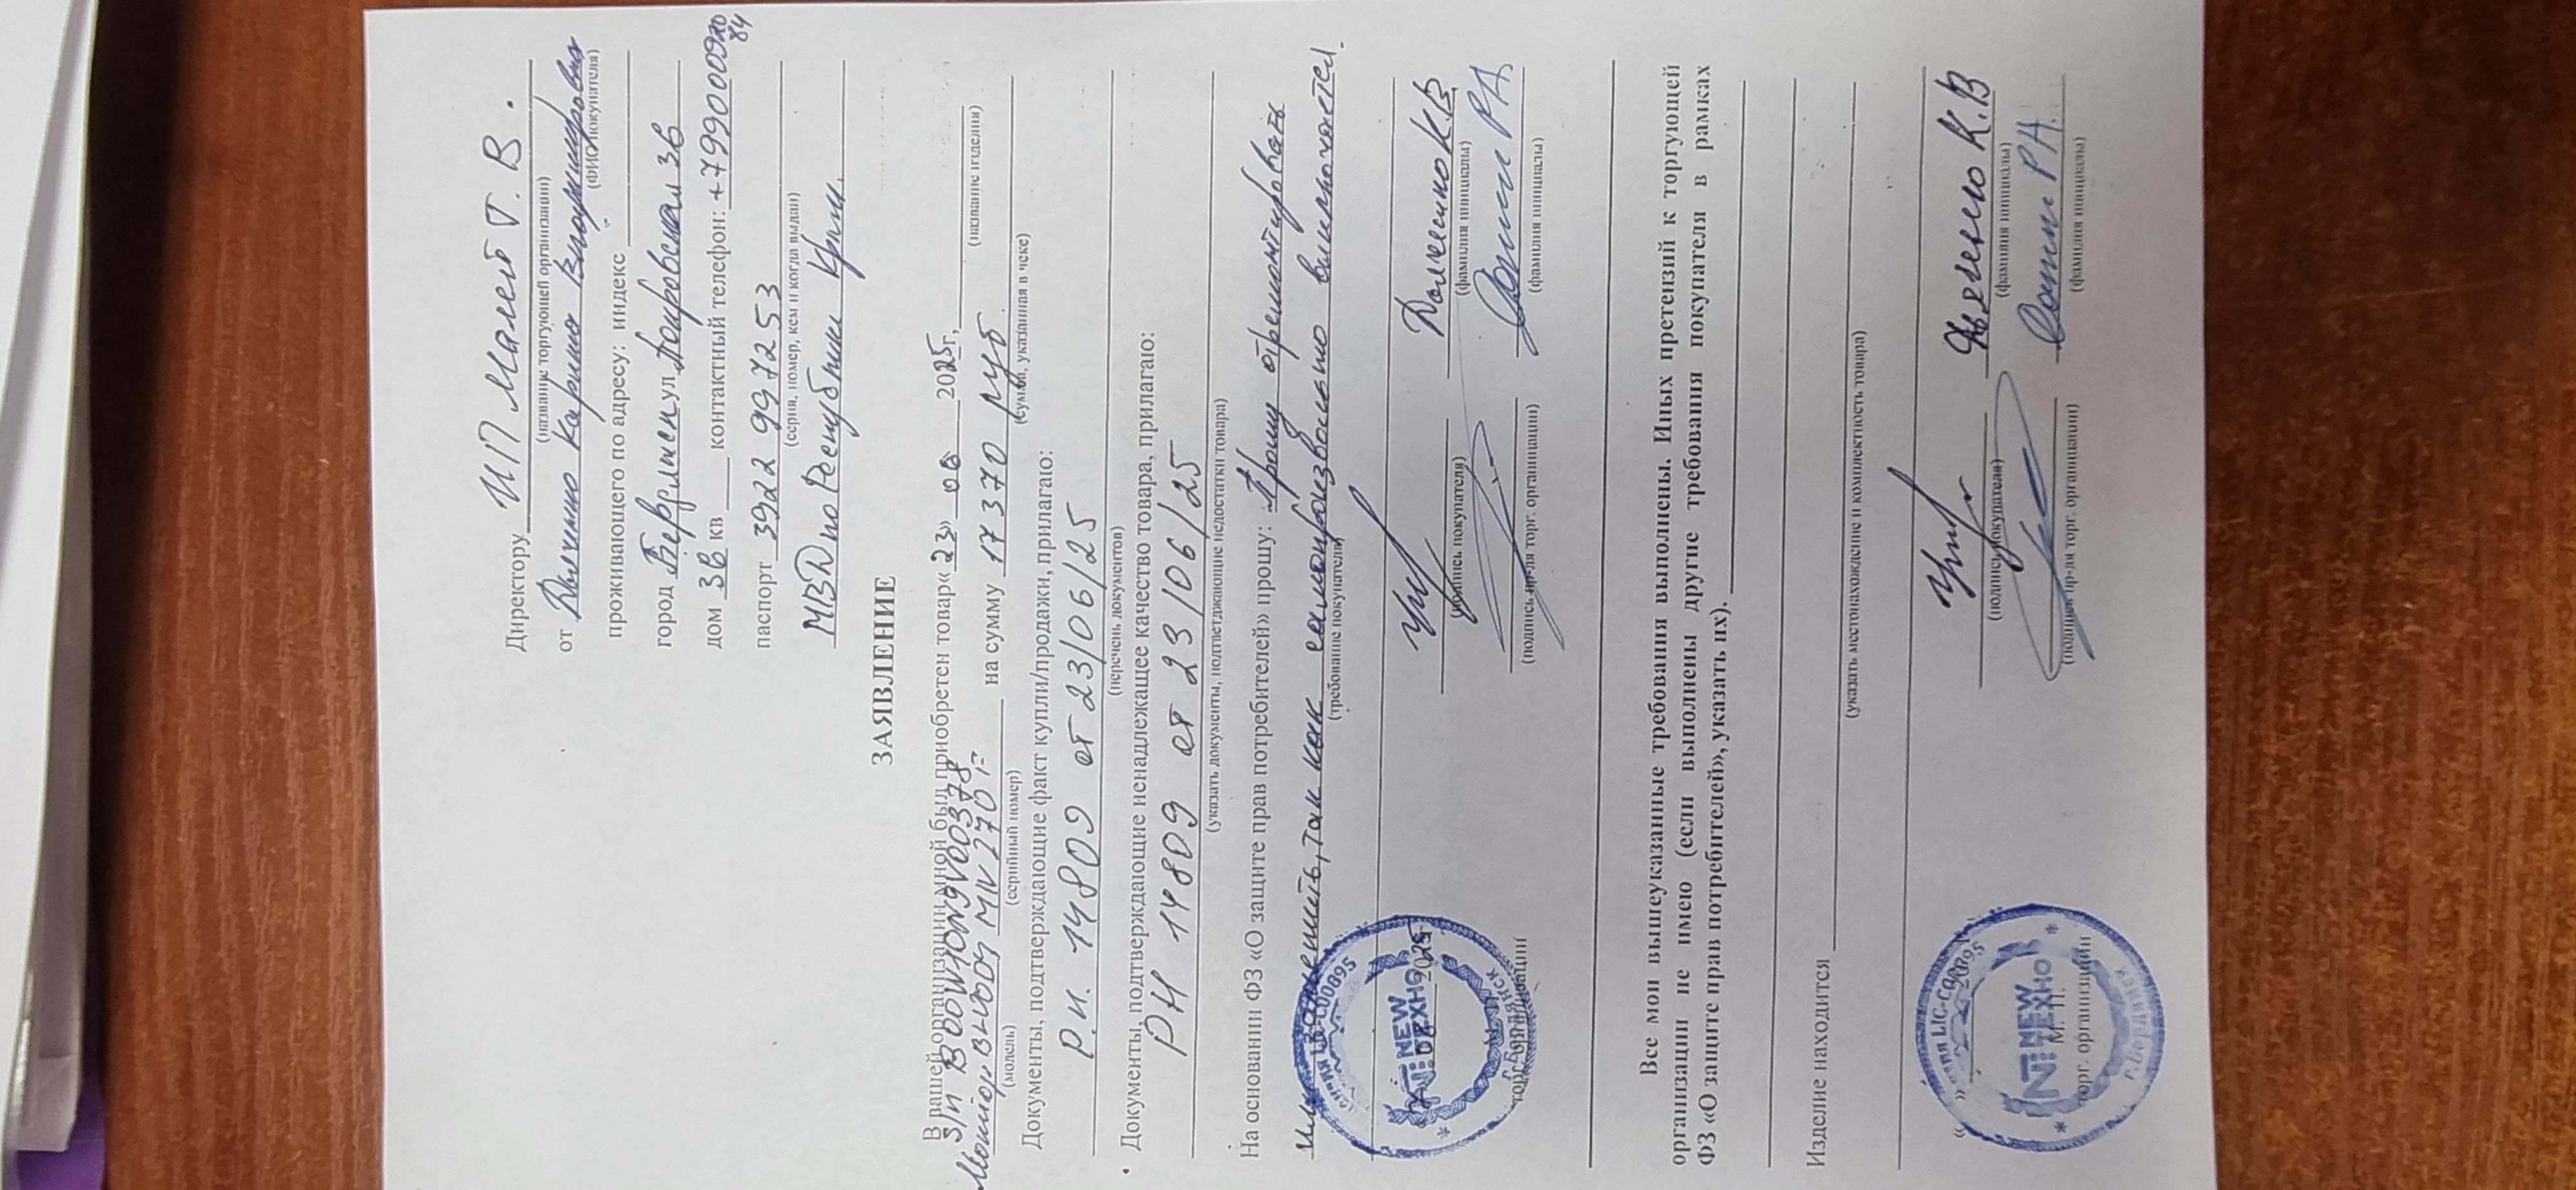 Директору ИП Малей Т. В.
(название торгующей организации)
от Карина Владимировна
(ФИО покупателя)
проживающего по адресу: индекс
город Бердянск ул. Покровская 3в
дом 3в кв контактный телефон: +7990009
84
паспорт 3922 997253
(серия, номер, кем и когда выдан)
МВД по Республике Крым.
ЗАЯВЛЕНИЕ
В вашей организации мной был приобретен товар «23» 06 2025г,
(название изделия)
S/N
Монитор MIV270 на сумму 17370 руб.
(модель) (серийный номер) (сумма, указанная в чеке)
Документы, подтверждающие факт купли/продажи, прилагаю:
Р.Н. 14809 от 23/06/25
(перечень документов)
Документы, подтверждающие ненадлежащее качество товара, прилагаю:
РН 14809 от 23/06/25
(указать документы, подтверждающие недостатки товара)
На основании ФЗ «О защите прав потребителей» прошу: Прошу отремонтировать
или заменить, так как самопроизвольно выключается.
(требование покупателя)
2025
(подпись покупателя) (фамилия инициалы)
NEW ТЕХНО
торг. организации (подпись пр-ля торг. организации) (фамилия инициалы)
Все мои вышеуказанные требования выполнены. Иных претензий к торгующей
организации не имею (если выполнены другие требования покупателя в рамках
ФЗ «О защите прав потребителей», указать их).
Изделие находится
(указать местонахождение и комплектность товара)
К.В
(подпись покупателя) (фамилия инициалы)
NEW ТЕХНО
М. П.
торг. организации (подпись пр-ля торг. организации) (фамилия инициалы)
г. Бердянск